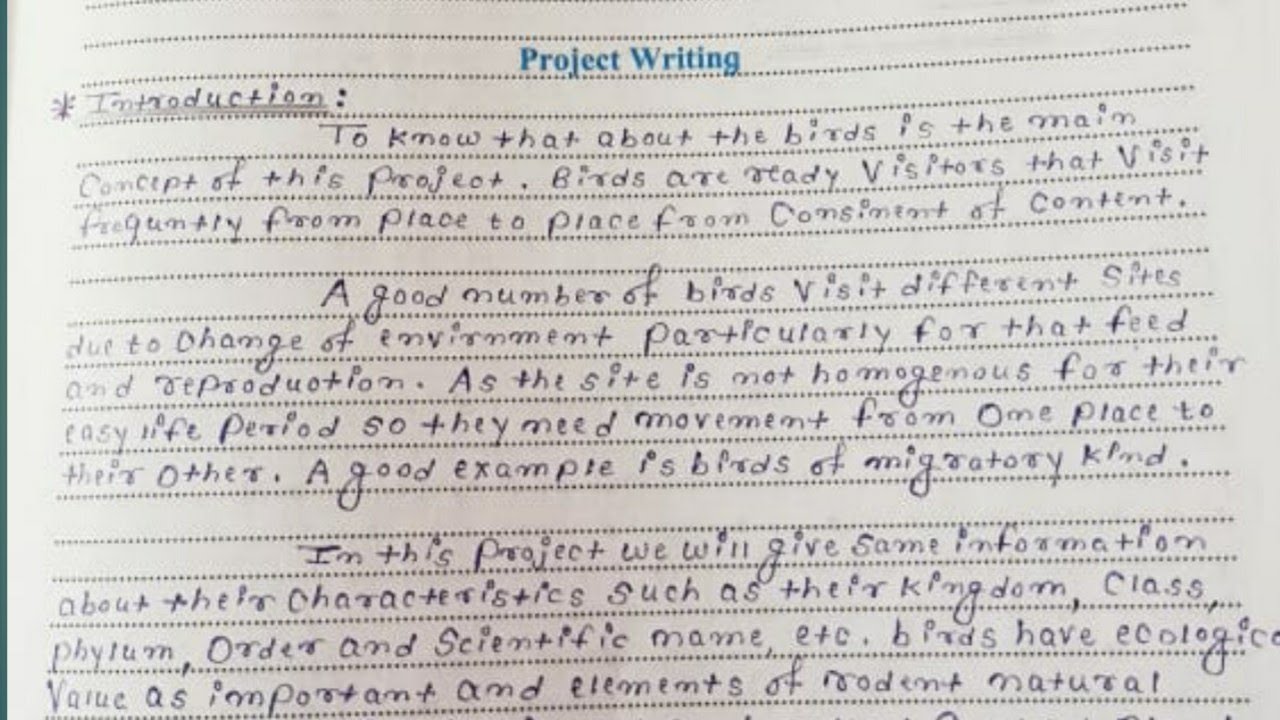 Project Writing
* Introduction:
To know that about the birds is the main
Concept of this project. Birds are ready Visitors that Visit
frequntly from place to place from Consinent of Content.
A good number of birds Visit different Sites
due to Change of envirnment particularly for that feed
and reproduction. As the site is not homogenous for their
easy life Period so they need movement from One place to
their Other. A good example is birds of migratory kind.
In this project we will give Same information
about their Characteristics Such as their kingdom, Class,
phylum, Order and Scientific name, etc. birds have ecologica
Value as important and elements of rodent natural